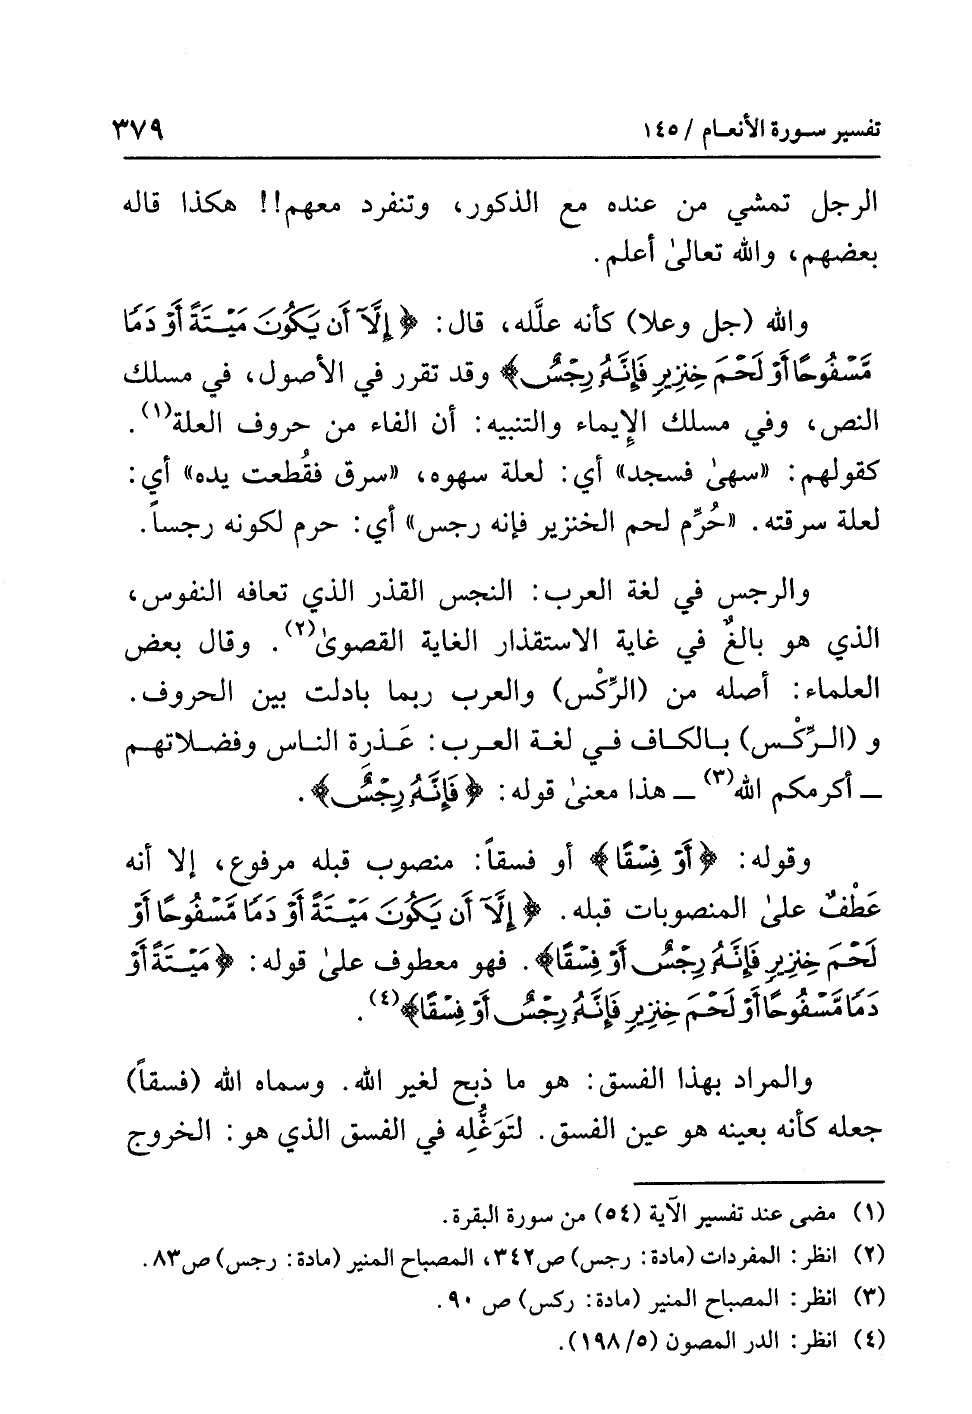 تفسير سورة الأنعام / ١٤٥
٣٧٩
الرجل تمشي من عنده مع الذكور، وتنفرد معهم!! هكذا قاله
بعضهم، والله تعالىٰ أعلم.
والله (جل وعلا) كأنه علَّله، قال: ﴿إِلَّآ أَن يَكُونَ مَيْتَةً أَوْ دَمًا
مَّسْفُوحًا أَوْ لَحْمَ خِنزِيرٍ فَإِنَّهُۥ رِجْسٌ﴾ وقد تقرر في الأصول، في مسلك
النص، وفي مسلك الإِيماء والتنبيه: أن الفاء من حروف العلة(١).
كقولهم: «سهىٰ فسجد» أي: لعلة سهوه، «سرق فقُطعت يده» أي:
لعلة سرقته. «حُرِّم لحم الخنزير فإنه رجس» أي: حرم لكونه رجساً.
والرجس في لغة العرب: النجس القذر الذي تعافه النفوس،
الذي هو بالغٌ في غاية الاستقذار الغاية القصوىٰ(٢). وقال بعض
العلماء: أصله من (الرِّكْس) والعرب ربما بادلت بين الحروف.
و (الـرِّكْـس) بـالكاف فـي لغـة العـرب: عَـذِرة النـاس وفضـلاتهـم
ــ أكرمكم الله(٣) ــ هذا معنىٰ قوله: ﴿فَإِنَّهُۥ رِجْسٌ﴾.
وقوله: ﴿أَوْ فِسْقًا﴾ أو فسقاً: منصوب قبله مرفوع، إلا أنه
عَطْفٌ علىٰ المنصوبات قبله. ﴿إِلَّآ أَن يَكُونَ مَيْتَةً أَوْ دَمًا مَّسْفُوحًا أَوْ
لَحْمَ خِنزِيرٍ فَإِنَّهُۥ رِجْسٌ أَوْ فِسْقًا﴾. فهو معطوف علىٰ قوله: ﴿مَيْتَةً أَوْ
دَمًا مَّسْفُوحًا أَوْ لَحْمَ خِنزِيرٍ فَإِنَّهُۥ رِجْسٌ أَوْ فِسْقًا﴾(٤).
والمراد بهذا الفسق: هو ما ذبح لغير الله. وسماه الله (فسقاً)
جعله كأنه بعينه هو عين الفسق. لتَوَغُّلِه في الفسق الذي هو: الخروج
(١) مضى عند تفسير الآية (٥٤) من سورة البقرة.
(٢) انظر: المفردات (مادة: رجس) ص٣٤٢، المصباح المنير (مادة: رجس) ص٨٣.
(٣) انظر: المصباح المنير (مادة: ركس) ص ٩٠.
(٤) انظر: الدر المصون (١٩٨/٥).